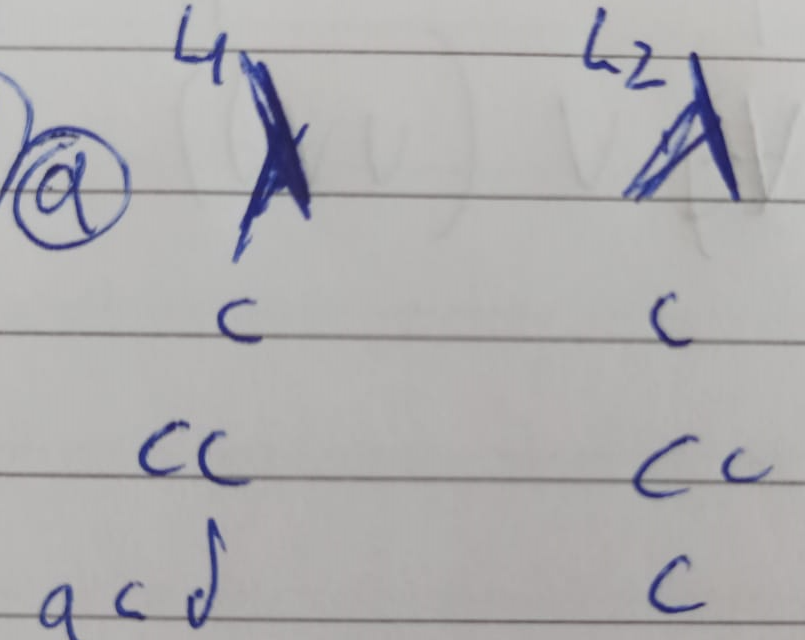 a L1 λ L2 λ
c c
cc cc
acd c